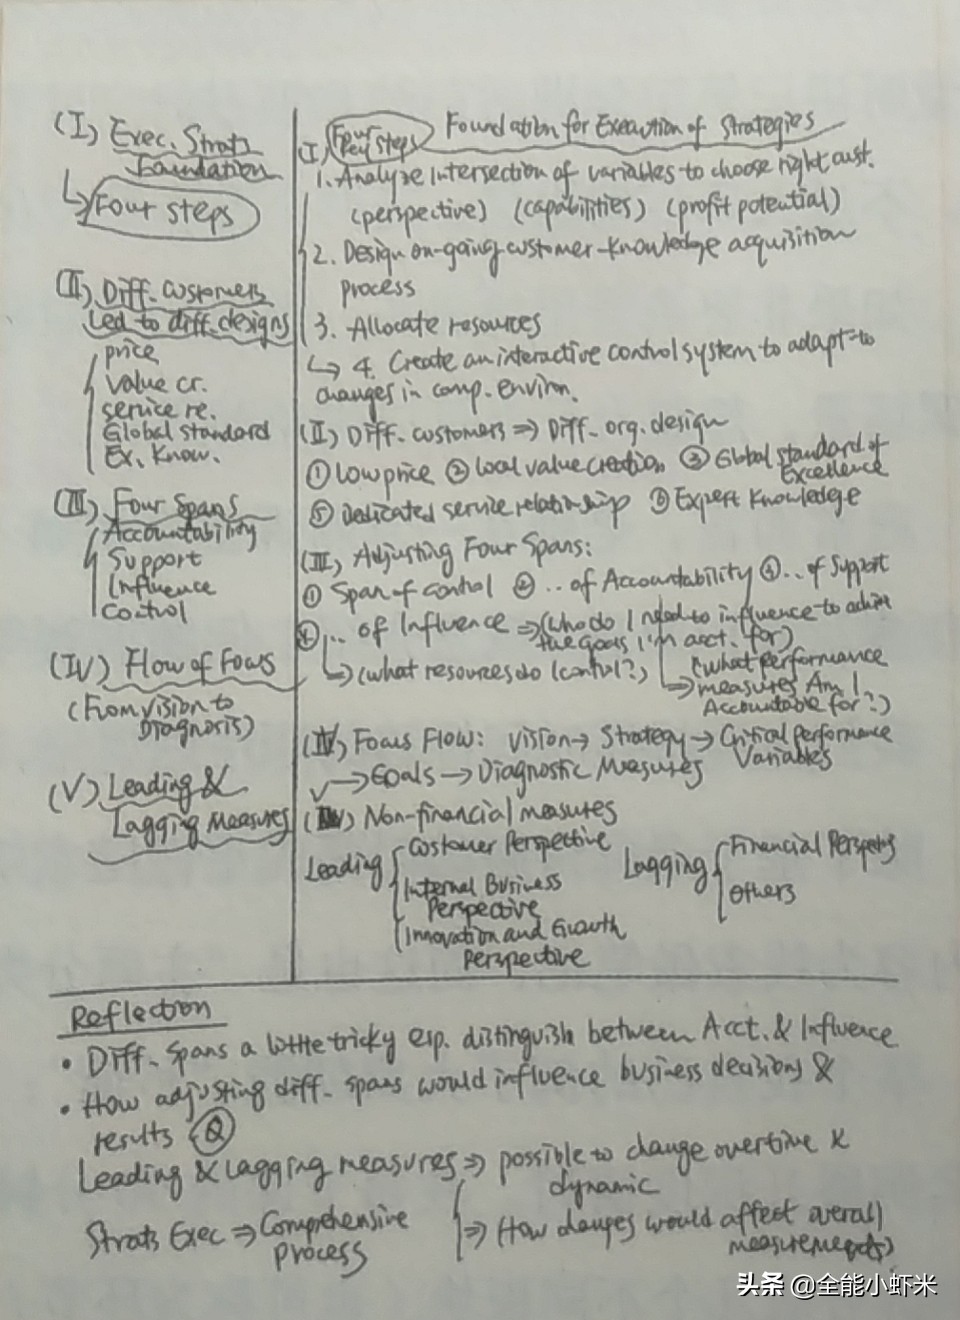 (I) Exec. Strats
Foundation
↳ Four steps
(II) Diff. customers
Led to diff. designs
price
Value cr.
service re.
Global standard
Ex. Know.
(III) Four Spans
Accountability
Support
Influence
Control
(IV) Flow of Focus
(From vision to
Diagnosis)
(V) Leading &
Lagging Measures
(I) Four steps Foundation for Execution of Strategies
1. Analyze intersection of variables to choose right cust.
(perspective) (capabilities) (profit potential)
2. Design on-going customer-knowledge acquisition
process
3. Allocate resources
↳ 4. Create an interactive control system to adapt to
changes in comp. environ.
(II) Diff. customers ⇒ Diff. org. design
① Low price ② Local value creation ③ Global standard of
Excellence
⑤ Dedicated service relationship ⑥ Expert Knowledge
(III) Adjusting Four Spans:
① Span of control ② .. of Accountability ③ .. of Support
④ .. of Influence ⇒ (who do I need to influence to achieve
the goals I'm acct. for)
↳ (what resources do I control?) (what performance
measures Am I
Accountable for?)
(IV) Focus Flow: Vision → Strategy → Critical performance
Variables
→ Goals → Diagnostic Measures
Non-financial measures
Leading Customer Perspective
Internal Business
Perspective
Innovation and Growth
Perspective
Lagging Financial
Others
Reflection
• Diff. spans a little tricky esp. distinguish between Acct. & Influence
• How adjusting diff. spans would influence business decisions &
results Q
Leading & Lagging measures ⇒ possible to change overtime &
dynamic
⇒ (How changes would affect overall
measurements)
Strats Exec ⇒ Comprehensive
process
头条 @全能小虾米